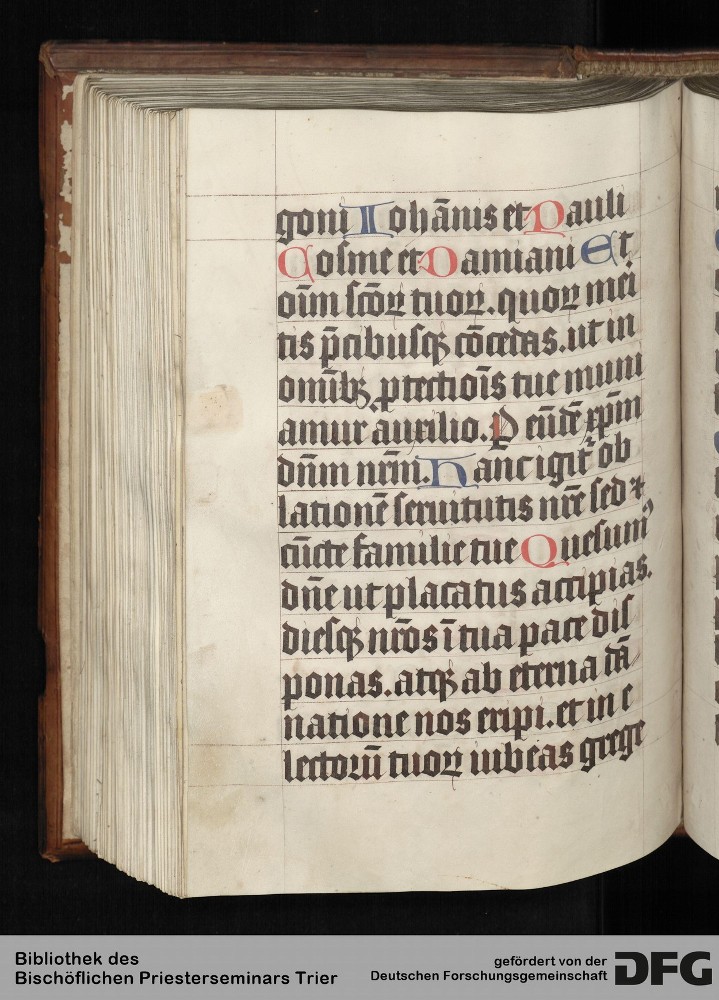 goni Iohānis et Pauli
Cosme et Damiani Et
oīm sc̄oꝝ tuoꝝ. quoꝝ meri
tis p̄cibusqꝫ cōcedas. ut in
omībꝫ ꝓtectiōis tue muni
amur auxilio. P eūdē xp̄m
dn̄m nr̄m. Hanc igit᷑ ob
lationē seruitutis nr̄e sed ⁊
cūcte familie tue Quesumꝰ
dn̄e ut placatus accipias.
diesqꝫ nr̄os ī tua pace dis
ponas. atqꝫ ab eterna dā
natione nos eripi. et in e
lectorū tuoꝝ iubeas grege
Bibliothek des
Bischöflichen Priesterseminars Trier
gefördert von der
Deutschen Forschungsgemeinschaft
DFG